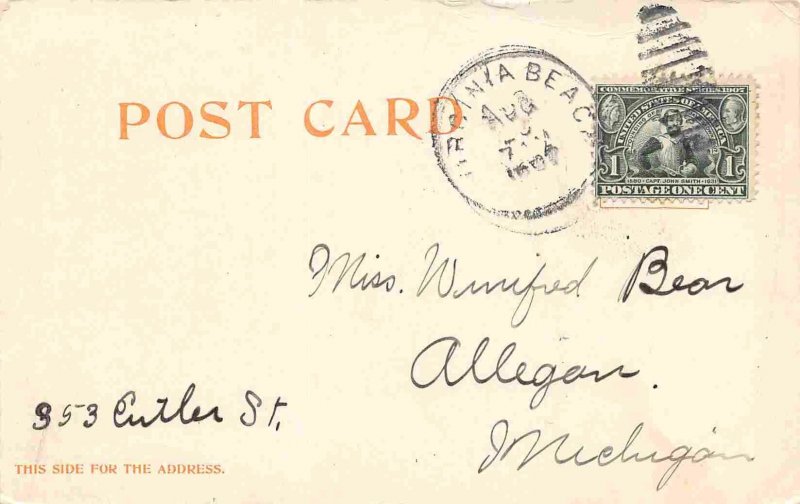 POST CARD
VIRGINIA BEACH
AUG
7
1907
COMMEMORATIVE SERIES 1907
UNITED STATES OF AMERICA
1 1
1580 · CAPT. JOHN SMITH · 1631
POSTAGE ONE CENT
Miss. Winifred Bear
Allegan.
Michigan
353 Cutler St.
THIS SIDE FOR THE ADDRESS.